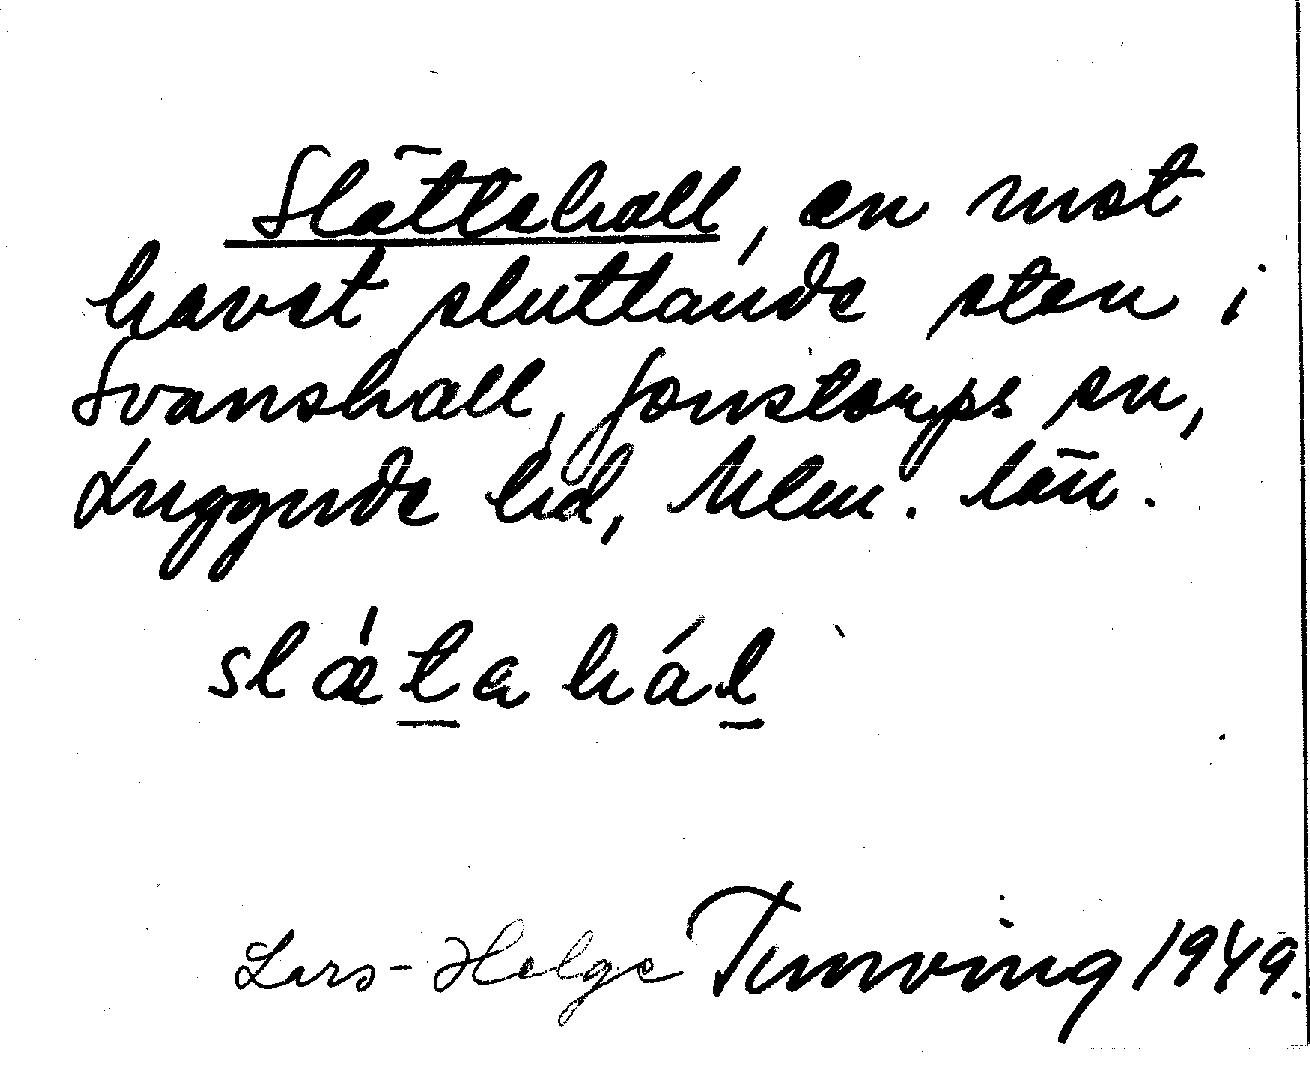 Slättehall, en mot
havet sluttande sten i
Svanshall, Jonstorps sn,
Luggude hd, Mlm. län.
slæ̍ta hál
Lars-Helge Tunving 1949.